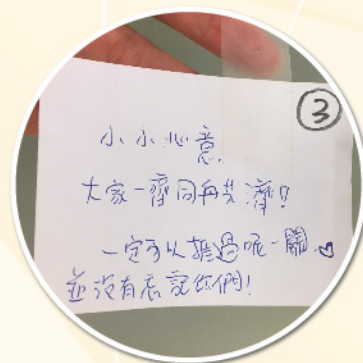 ③
小小心意,
大家一齊同舟共濟!!
一定可以捱過呢一關.
並沒有忘記你們!